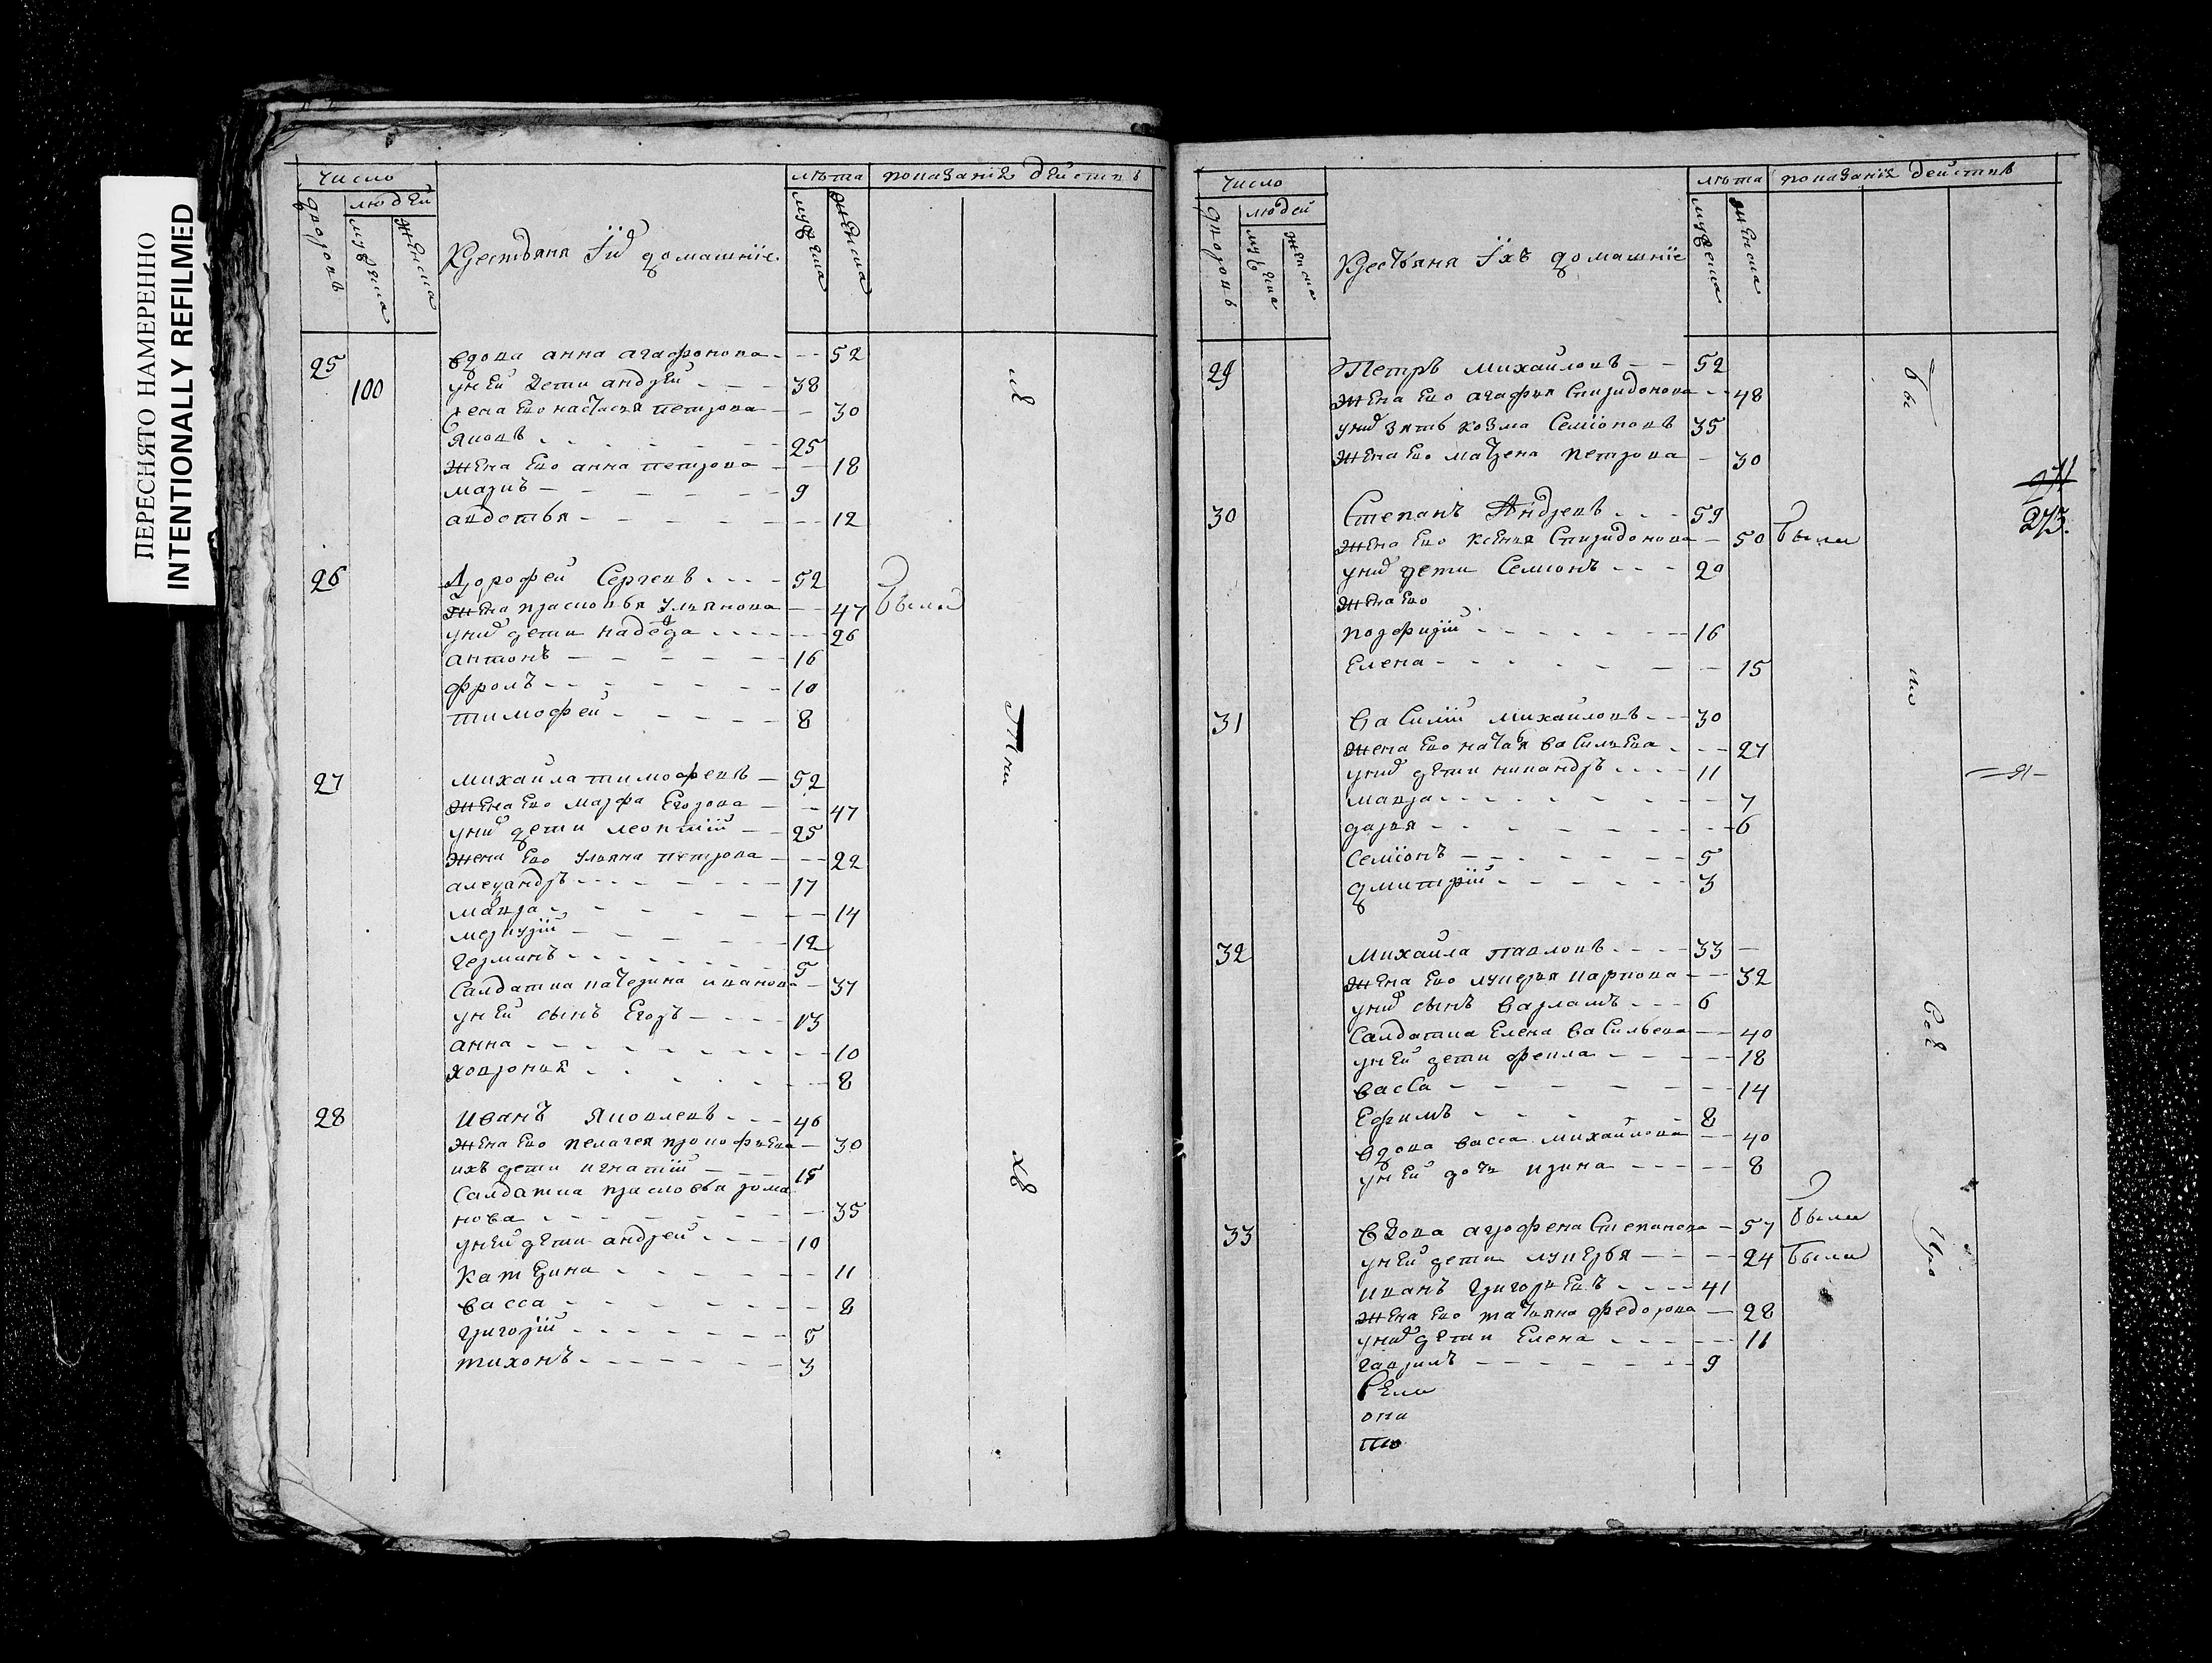 ПЕРЕСНЯТО НАМЕРЕННО
INTENTIONALLY REFILMED
число
людей
дворовъ
мужеска
женска
Крестьяня Їхъ домашніе
лѣта
мужеска
женска
показаніе действъ
25 вдова анна агафонова 52
100 уней дети андрей 38
жена ево настасья петрова 30
яковъ 25
жена ево анна петрова 18
мариъ 9
авдотья 12
26 Дорофей Сергеевъ 52
жена прасковья Ульянова 47 были
унихъ дети надежда 26
антонъ 16
фролъ 10
тимофей 8
27 михаила тимофеевъ 52
жена ево марфа Егорова 47
унихъ дети леонтїй 25
жена ево Ульяна петрова 22
алеѯандръ 17
мавра 14
меркурїй 12
германъ 5
Салдатка катерина иванова 37
уней сынъ Егоръ 13
анна 10
ховронья 8
28 иванъ яковлевъ 46
жена ево пелагея прокофьева 30
ихъ дети игнатїй 15
Салдатка прасковья рома
нова 35
уней дети андрей 10
катерина 11
васса 8
григорїй 5
тихонъ 3
число
людей
дворовъ
мужеска
женска
Крестьяня Їхъ домашнїе
лѣта
мужеска
женска
показанїе действъ
29 Петръ михайловъ 52
жена ево агафья Спиридонова 48
унихъ зять козма Семїоновъ 35
жена ево матрена петрова 30
271
273.
30 Степанъ Андреевъ 59
жена ево ксенья Спиридонова 50 были
унихъ дети Семионъ 20
жена ево
порфирїй 16
Елена 15
31 василїй михайловъ 30
жена ево наталья васильева 27
унихъ дети никандръ 11
мавра 7
дарья 6
Семїонъ 5
дмитрїй 3
32 михаила павловъ 33
жена ево лукерья карпова 32
унихъ сынъ варламъ 6
Салдатка Елена васильева 40
уней дети фекла 18
васса 14
Ефимъ 8
вдова васса михайлова 40
уней дочь ирина 8
33 вдова агрофена Степанова 57 были
уней дети лукерья 24 были
иванъ григорьевъ 41
жена ево татьяна федорова 28
унихъ дети Елена 11
гаврилъ 9
они